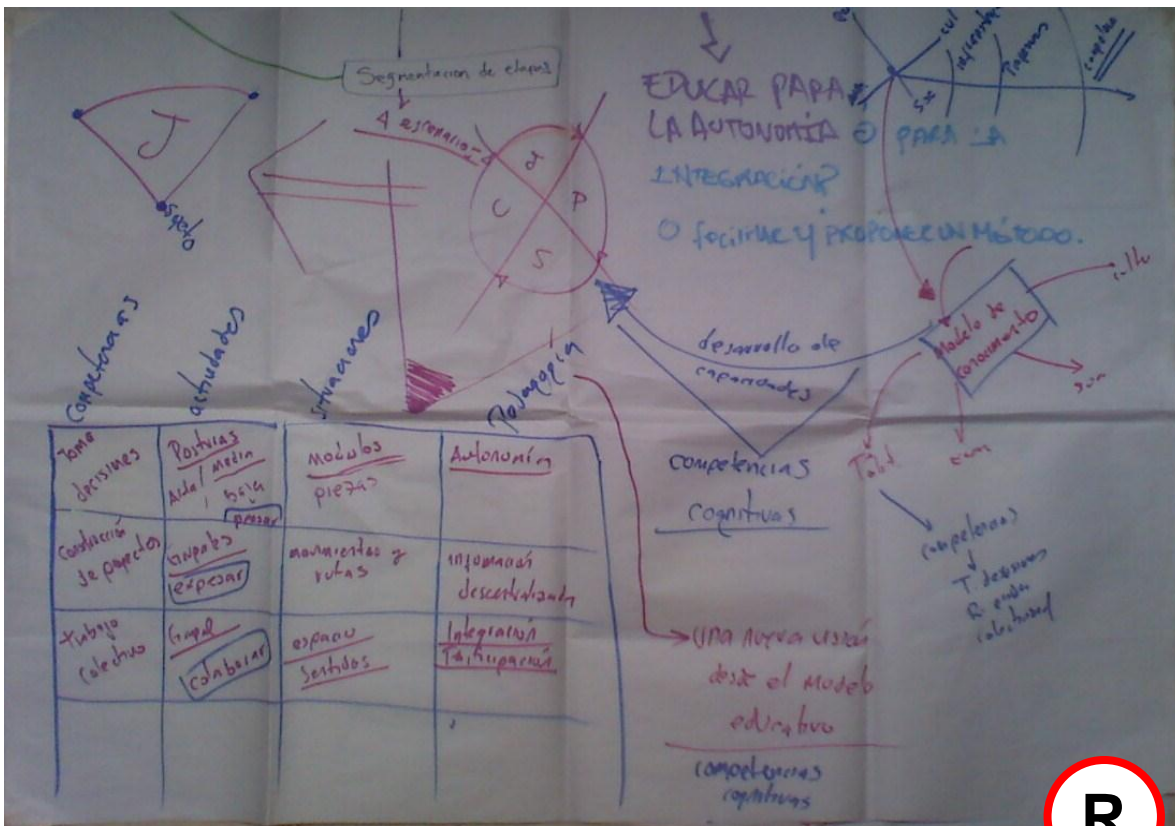 Segmentacion de etapas
4 escenarios
J
sujeto
J
C
P
S
EDUCAR PARA
LA AUTONOMÍA O PARA LA
INTEGRACIÓN?
O facilitar y PROPONER UN MÉTODO.
Modelo de
conocimiento
desarrollo de
capacidades
competencias
cognitivas
competencias
T. decisiones
competencias
actividades
situaciones
Pedagogía
Toma
decisiones
Posturas
Alta / Media
, baja
módulos
piezas
Autonomía
Construcción
de proyectos
Grupales
expresar
movimientos y
rutas
información
descentralizada
trabajo
colectivo
Grupal
colaborar
espacio
Sentidos
Integración
Participación
una nueva visión
desde el modelo
educativo
competencias
cognitivas
R